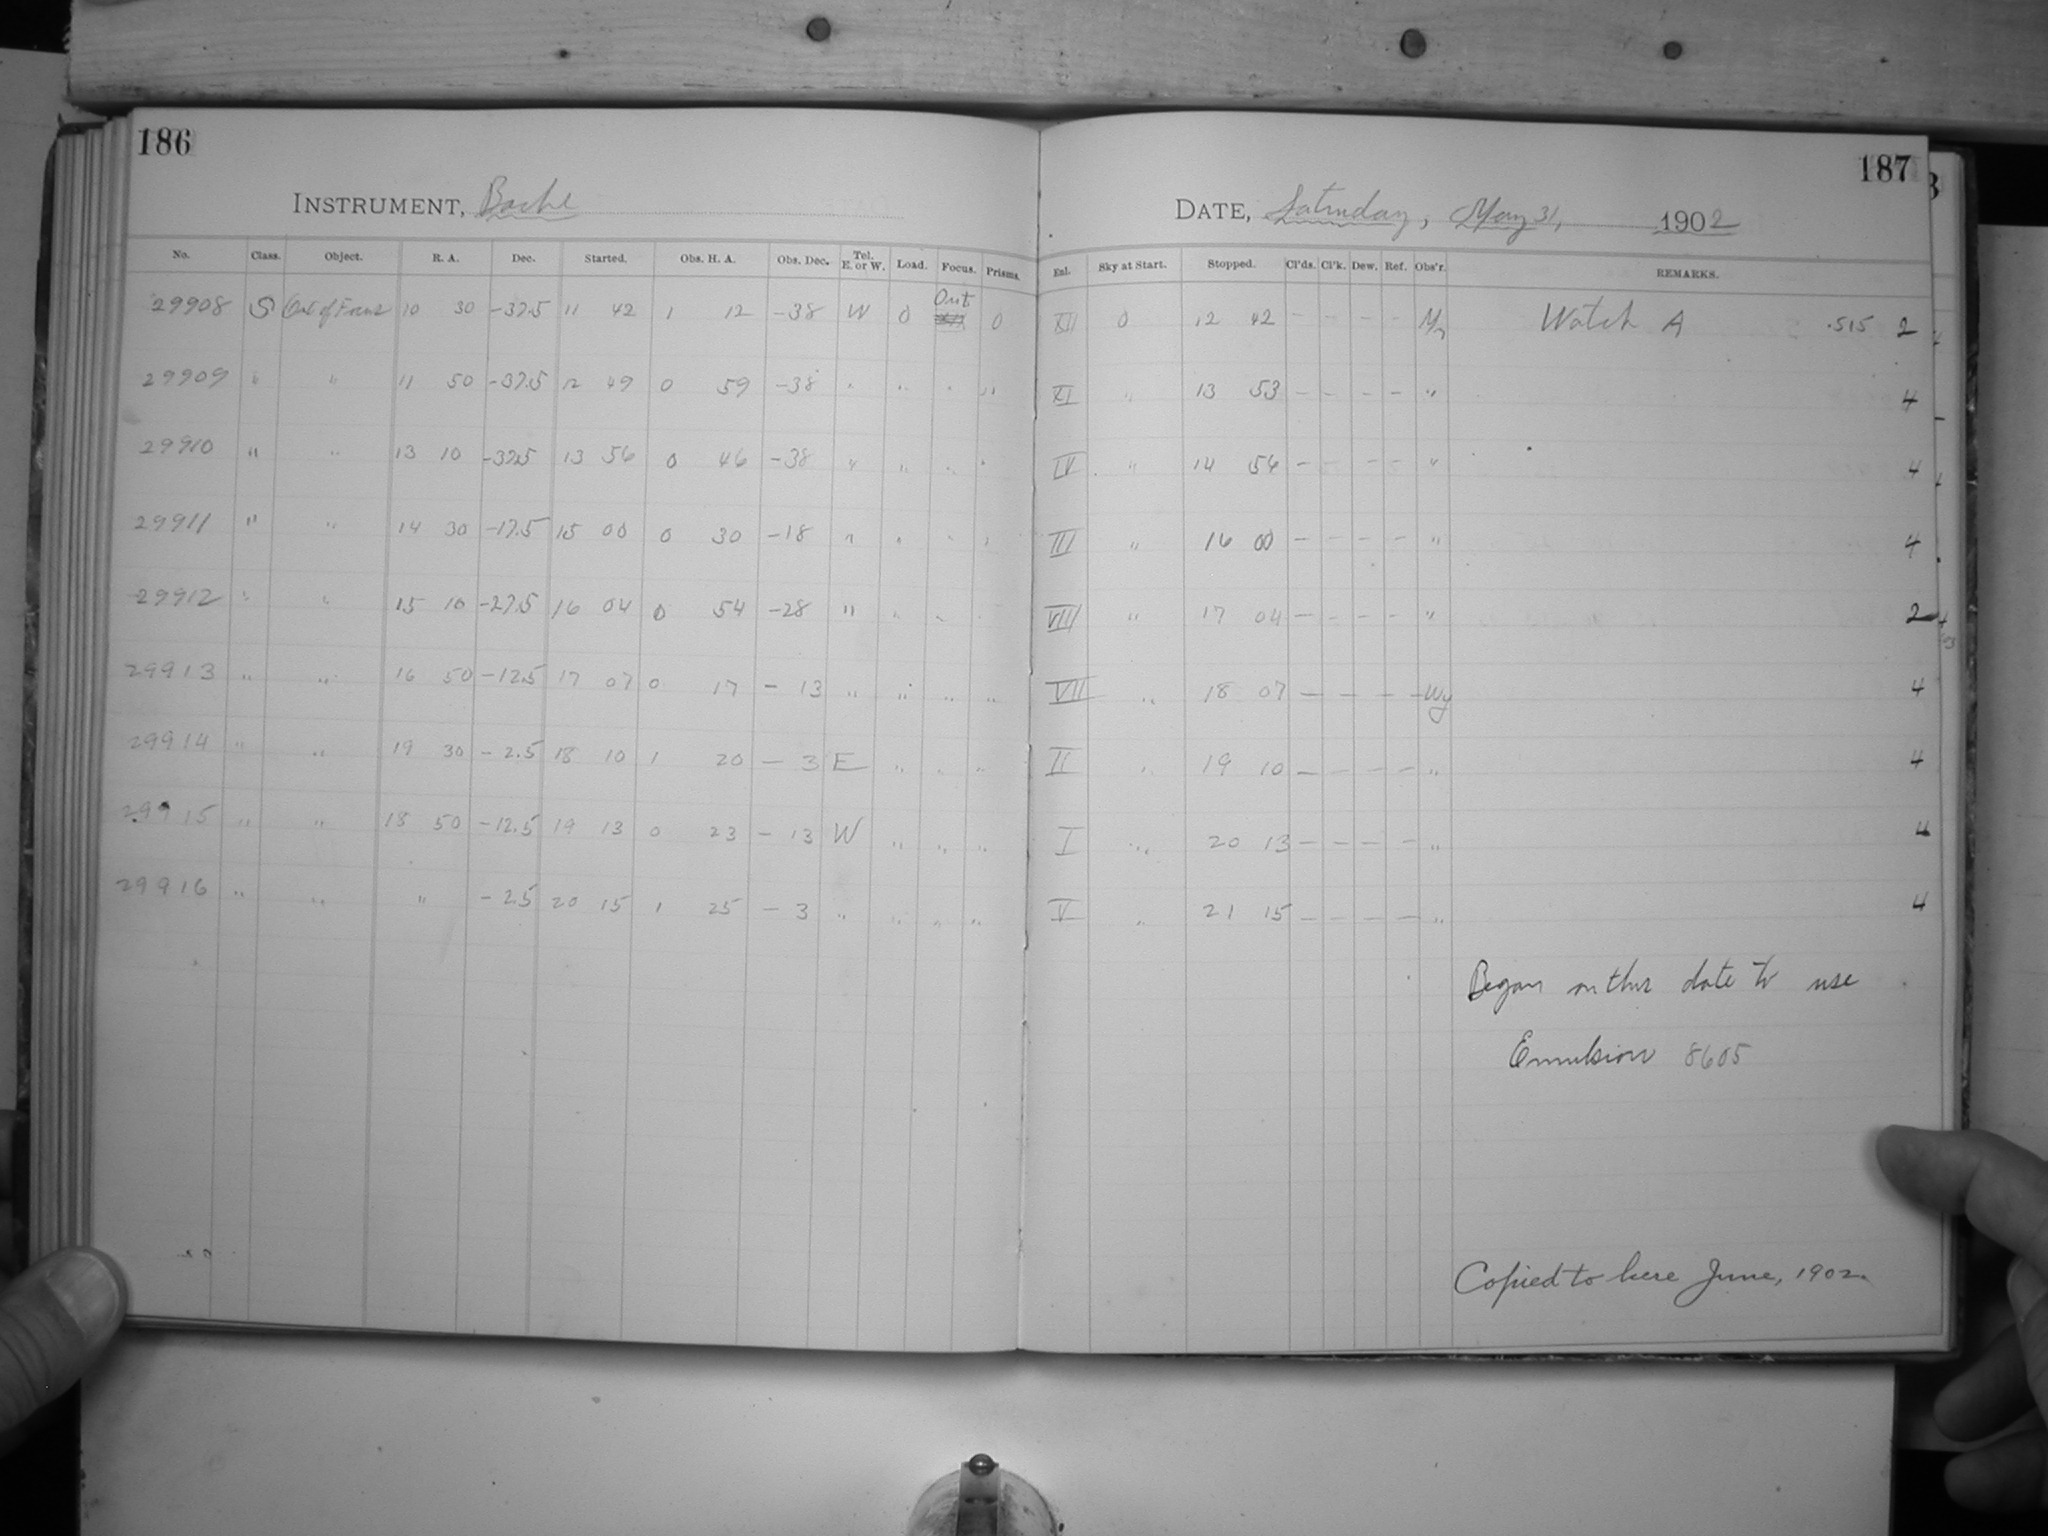 186
187
INSTRUMENT, Bache
DATE, Saturday, May 31, 1902
No. Class. Object. R. A. Dec. Started. Obs. H. A. Obs. Dec. Tel. E. or W. Load. Focus. Prisms. Enl. Sky at Start. Stopped. Cl'ds. Cl'k. Dew. Ref. Obs'r. REMARKS.
29908 S Out of Focus 10 30 -37.5 11 42 1 12 -38 W 0 Out 0 XII 0 12 42 - - - - Watch A .515 2
29909 " " 11 50 -37.5 12 49 0 59 -38 " " " " XI " 13 53 - - - - " 4
29910 " " 13 10 -37.5 13 56 0 46 -38 " " " " IV " 14 56 - - - - " 4
29911 " " 14 30 -17.5 15 00 0 30 -18 " " " " III " 16 00 - - - - " 4
29912 " " 15 10 -27.5 16 04 0 54 -28 " " " VIII " 17 04 - - - - " 2
29913 " " 16 50 -12.5 17 07 0 17 - 13 " " " " VII " 18 07 - - - - Wy 4
29914 " " 19 30 - 2.5 18 10 1 20 - 3 E " " " II " 19 10 - - - - " 4
29915 " " 18 50 -12.5 19 13 0 23 - 13 W " " " I " 20 13 - - - - " 4
29916 " " " - 2.5 20 15 1 25 - 3 " " " " V " 21 15 - - - - " 4
Began on this date to use
Emulsion 8605
Copied to here June, 1902.